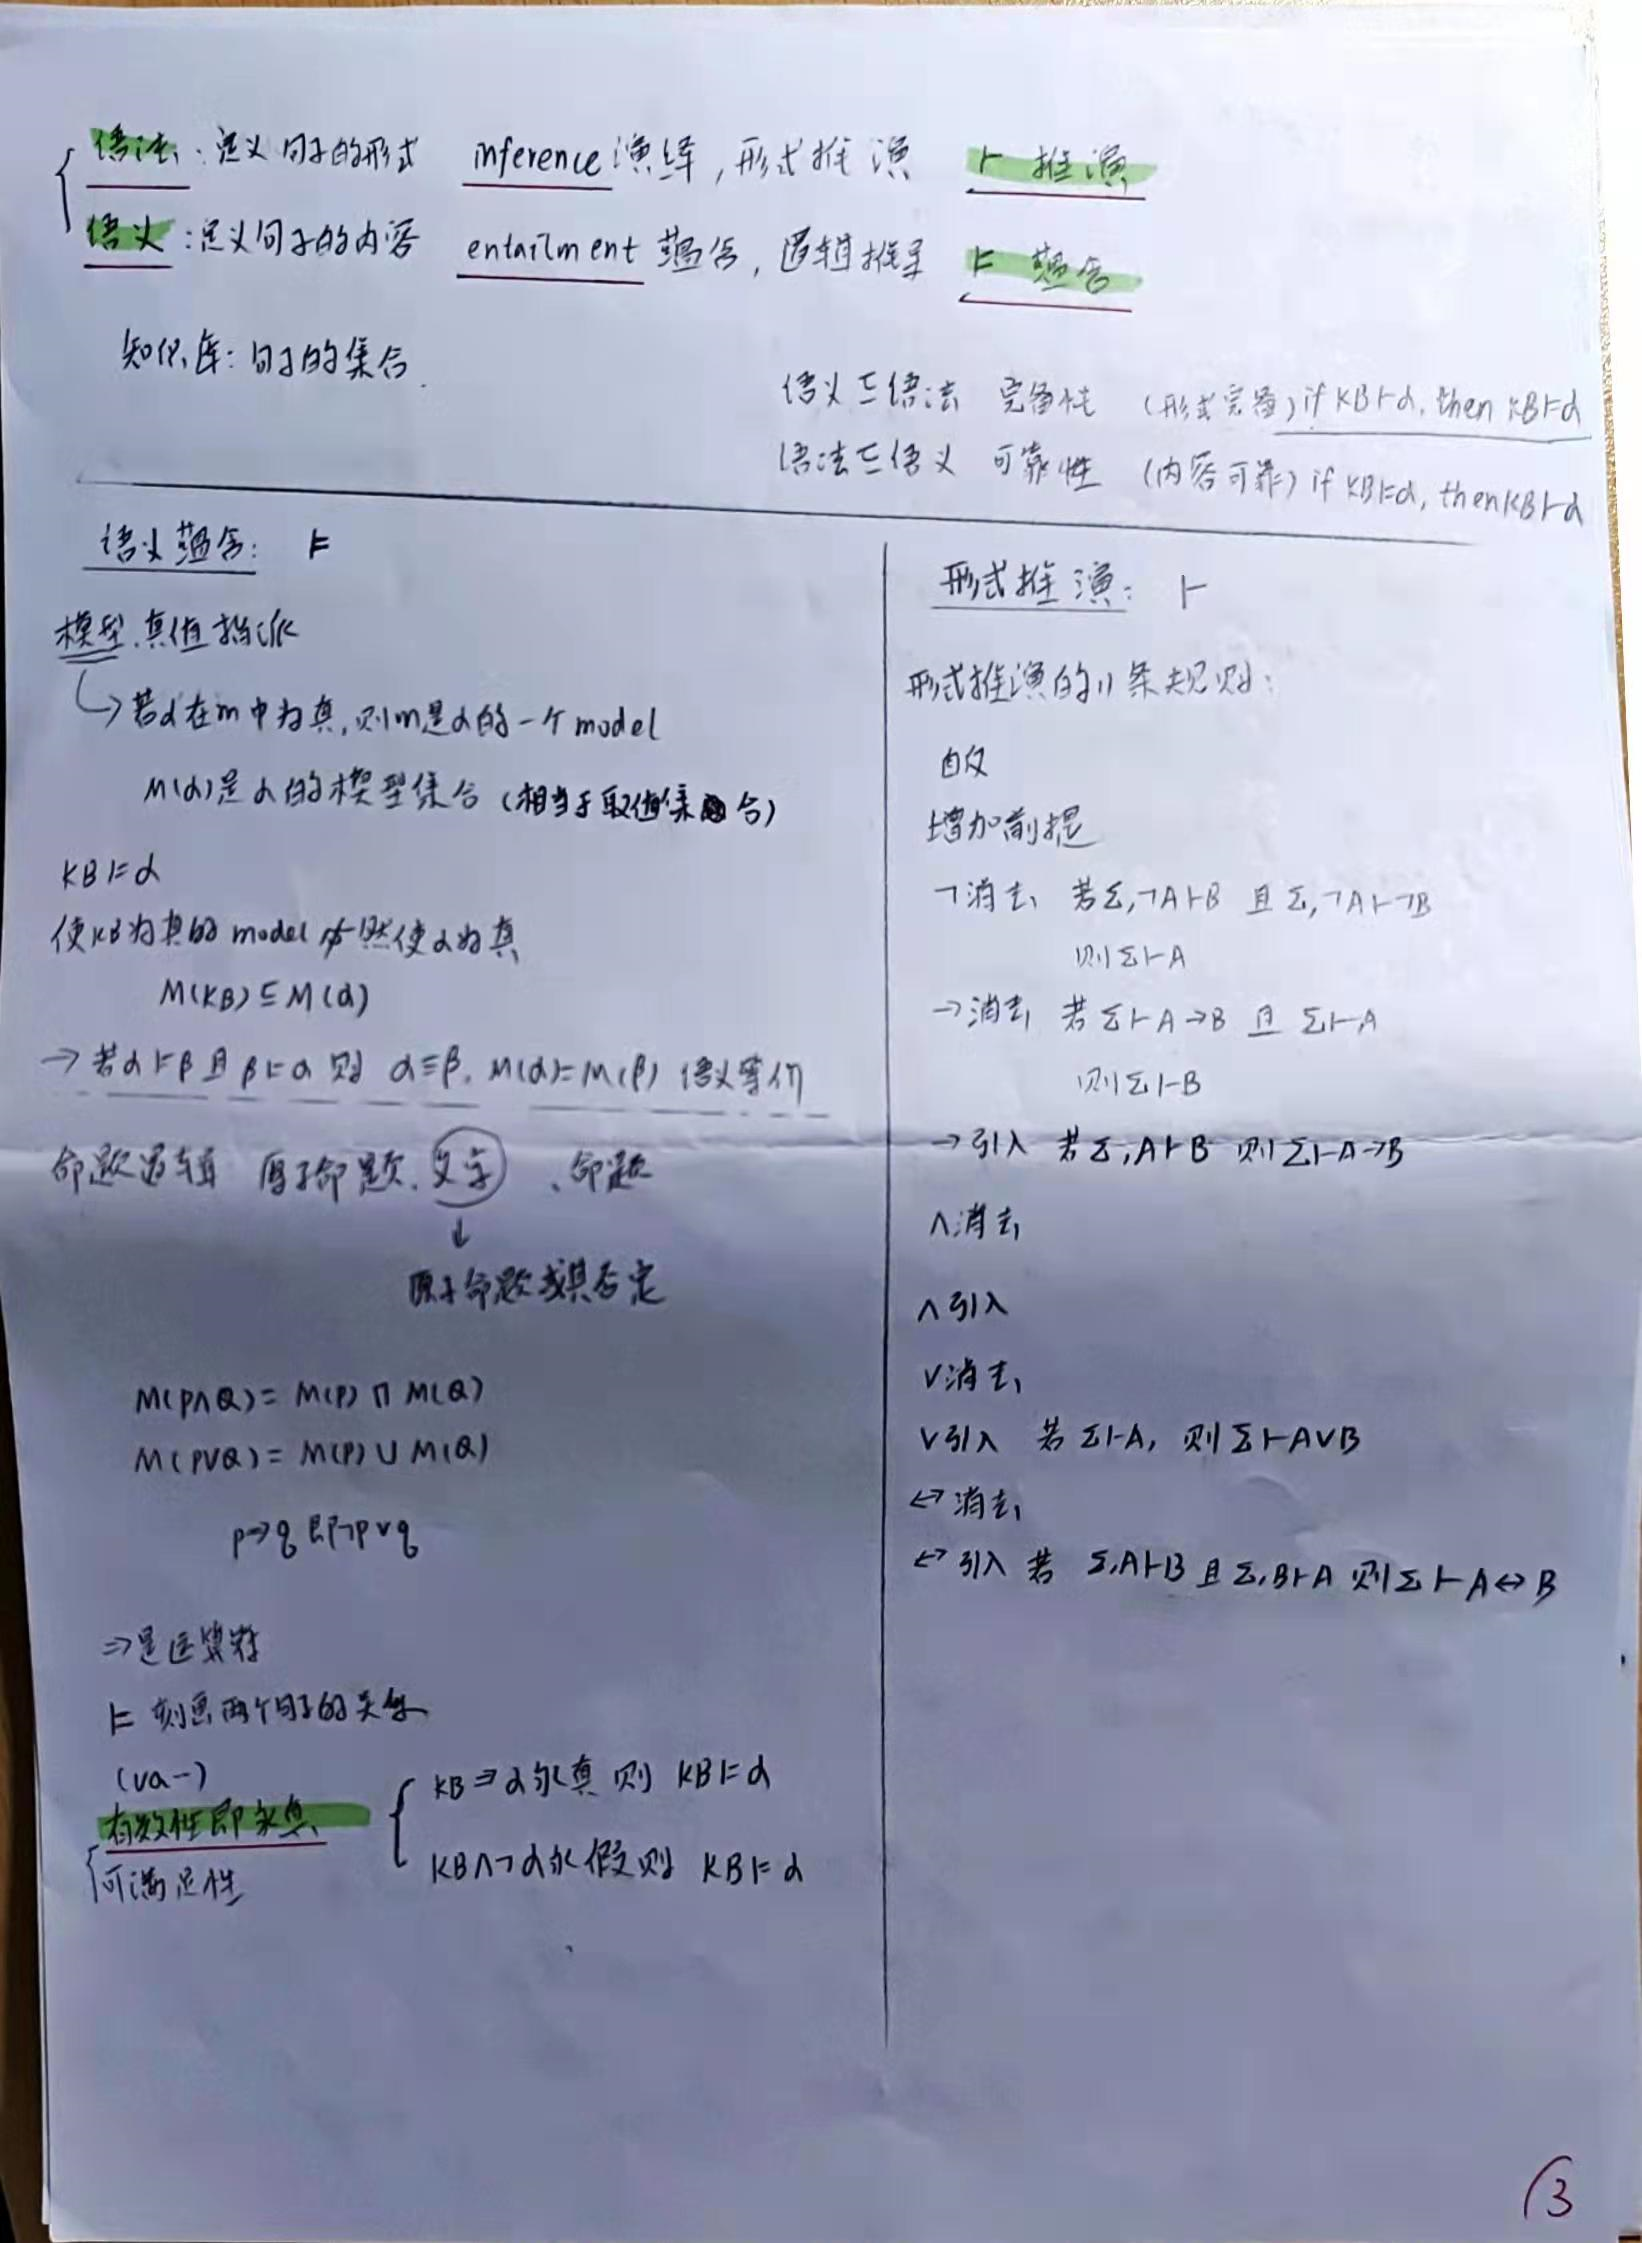 语法：定义句子的形式 inference 演绎，形式推演 ⊢ 推演
语义：定义句子的内容 entailment 蕴含，逻辑推导 ⊨ 蕴含
知识库：句子的集合.
语义⊑语法 完备性 （形式完备）if KB⊢α, then KB⊨α
语法⊑语义 可靠性 （内容可靠）if KB⊨α, then KB⊢α
语义蕴含： ⊨
模型、真值指派
↳若α在m中为真，则m是α的一个model
M(α)是α的模型集合（相当于取值集合）
KB⊨α
使KB为真的model必然使α为真
M(KB)⊆M(α)
→若α⊨β且β⊨α则 α≡β, M(α)=M(β) 语义等价
命题逻辑 原子命题、文字、命题
↓
原子命题或其否定
M(P∧Q)= M(P)∩M(Q)
M(P∨Q)= M(P)∪M(Q)
p→q即¬p∨q
⇒是运算符
⊨ 刻画两个句子的关系
(va-)
有效性即永真
可满足性
KB⇒α永真则 KB⊨α
KB∧¬α永假则 KB⊨α
形式推演： ⊢
形式推演的11条规则：
自反
增加前提
¬消去 若Σ,¬A⊢B 且Σ,¬A⊢¬B
则Σ⊢A
→消去 若Σ⊢A→B 且 Σ⊢A
则Σ⊢B
→引入 若Σ,A⊢B 则Σ⊢A→B
∧消去
∧引入
∨消去
∨引入 若Σ⊢A, 则Σ⊢A∨B
↔消去
↔引入 若 Σ,A⊢B 且Σ,B⊢A 则Σ⊢A↔B
3